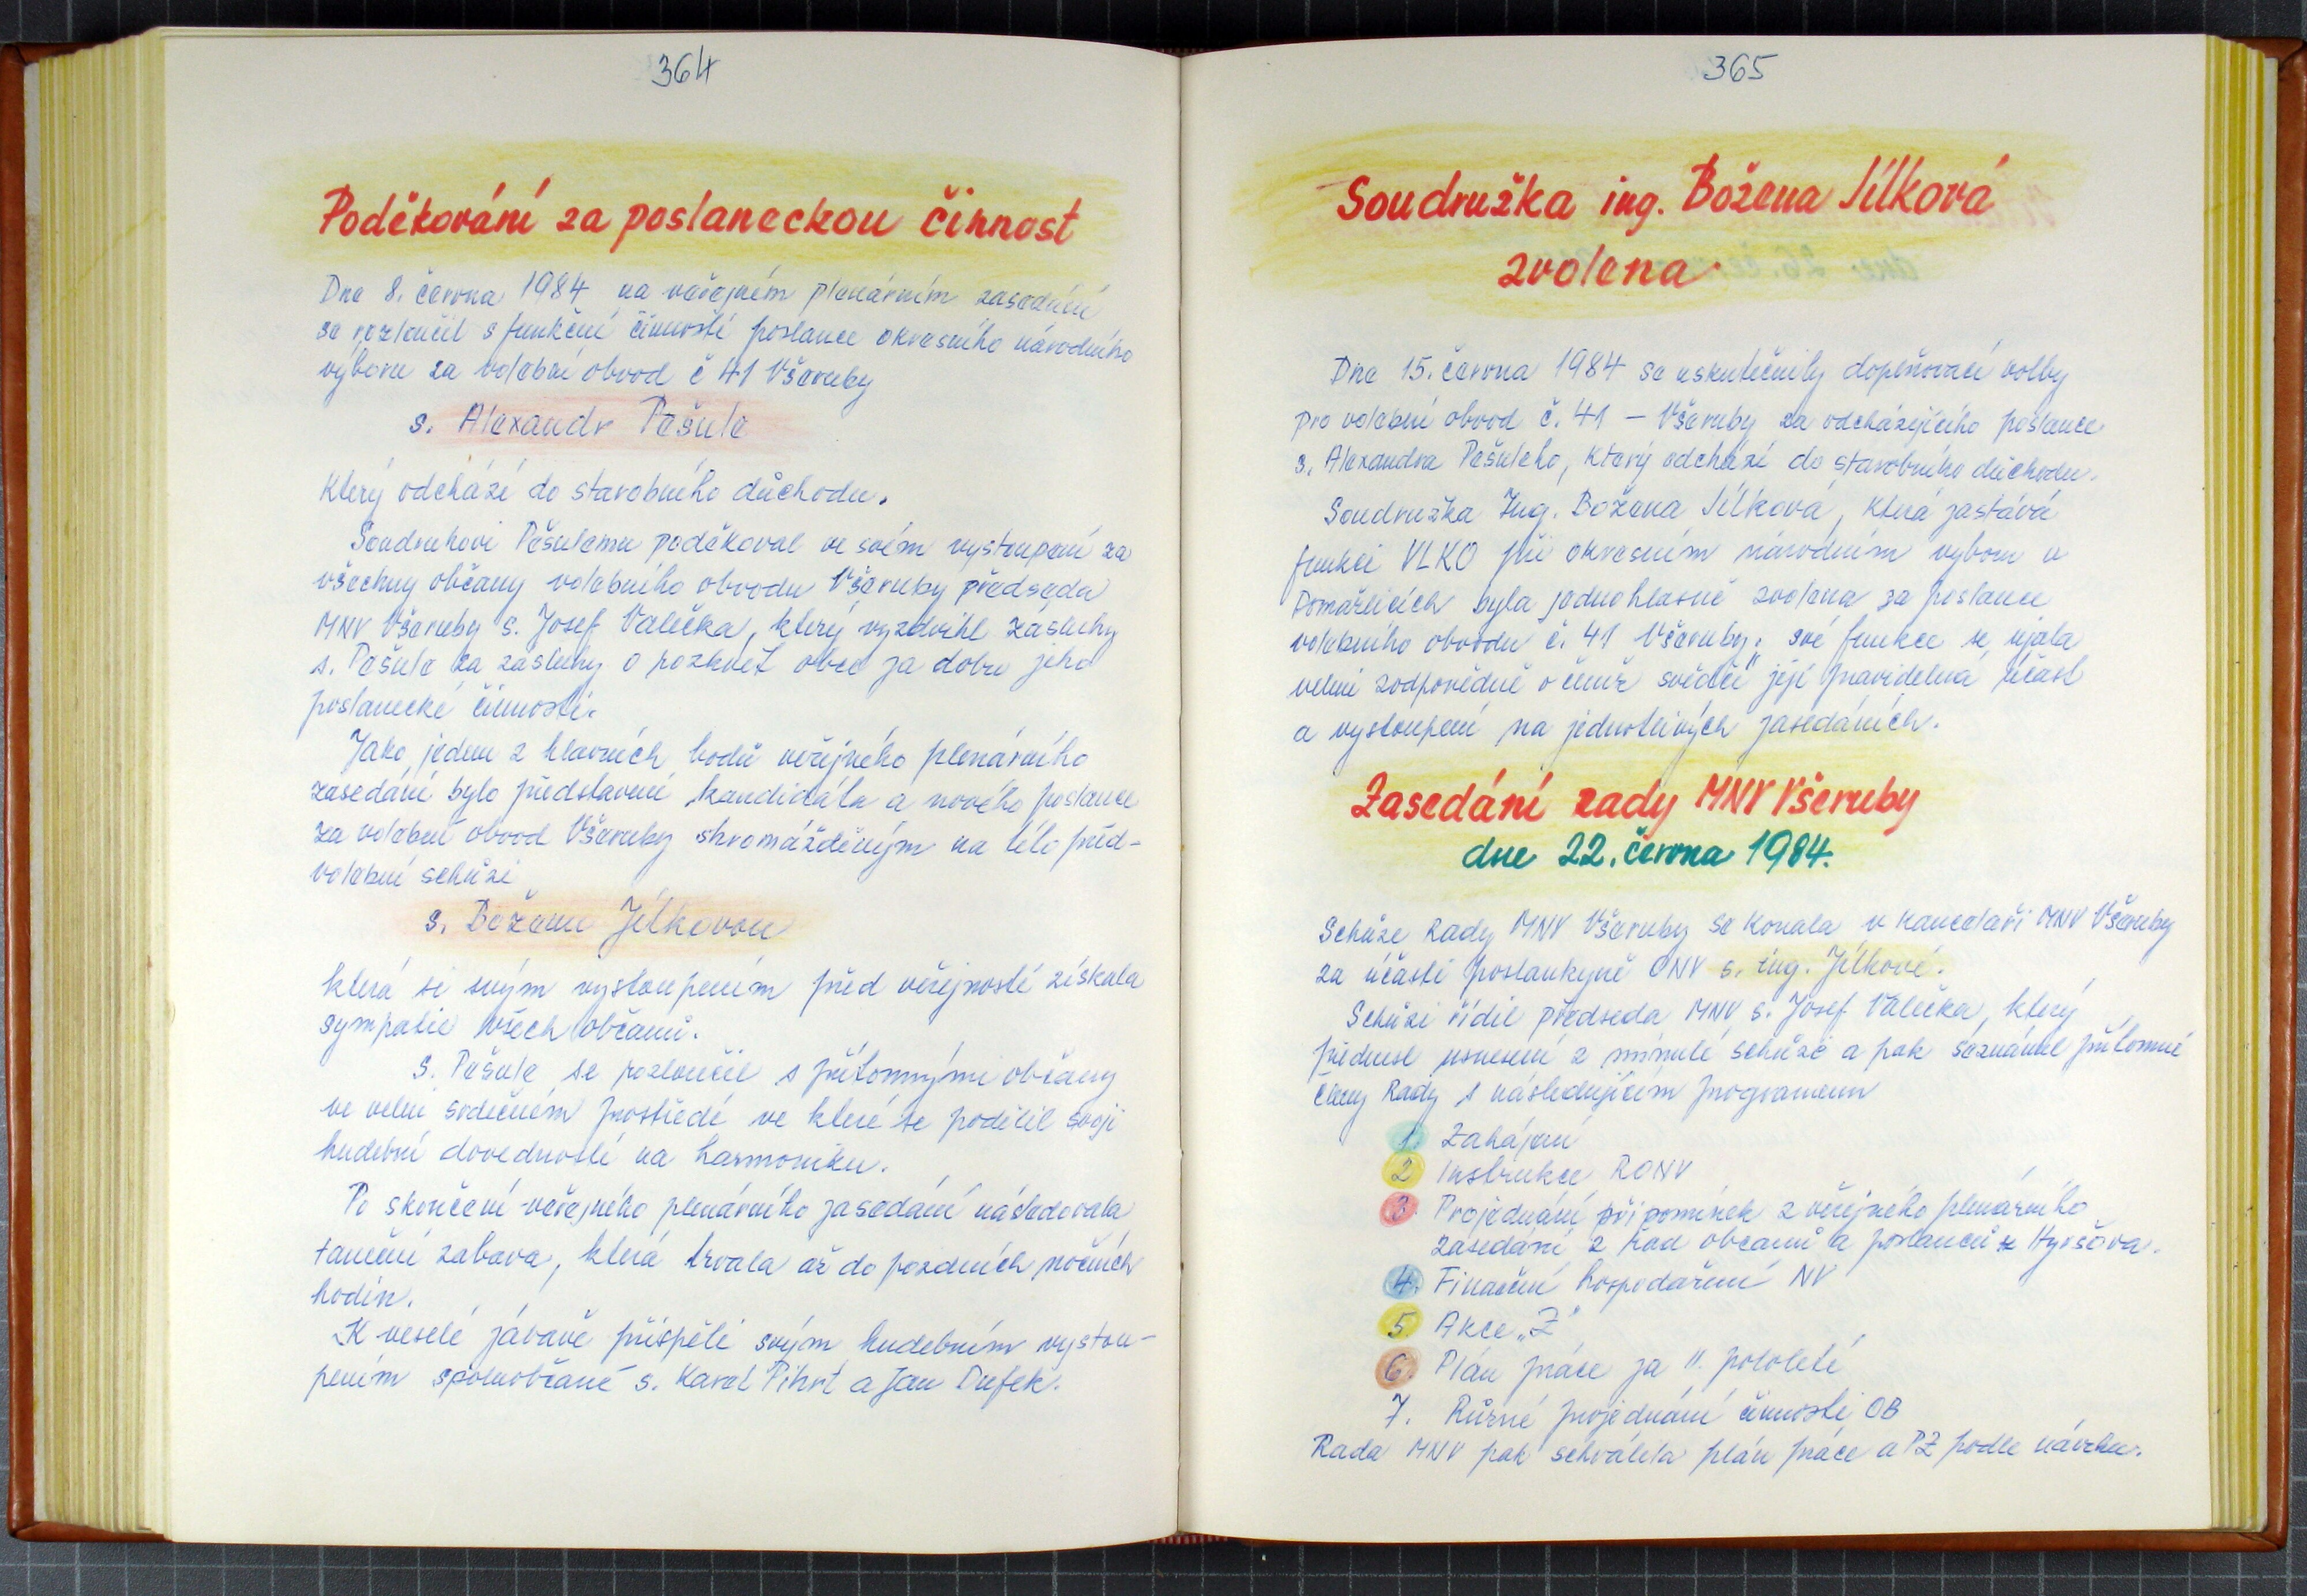 364
Poděkování za poslaneckou činnost
Dne 8. června 1984 na veřejném plenárním zasedání
se rozloučil s funkční činností poslance okresního národního
výboru za volební obvod č 41 Všeruby
s. Alexandr Pešule
Který odchází do starobního důchodu.
Soudruhovi Pešulemu poděkoval ve svém vystoupení za
všechny občany volebního obvodu Všeruby předseda
MNV Všeruby s. Josef Valečka, který vyzdvihl zásluhy
s. Pešule za zásluhy o rozkvět obce za dobu jeho
poslanecké činnosti.
Jako jeden z hlavních bodů veřejného plenárního
zasedání bylo představení kandidáta a nového poslance
za volební obvod Všeruby shromážděným na této před-
volební schůzi
s. Boženu Jílkovou
která si svým vystoupením před veřejností získala
sympatie všech občanů.
S. Pešule se rozloučil s přítomnými občany
ve velmi srdečném prostředí ve které se podělil svojí
hudební dovedností na harmoniku.
Po skončení veřejného plenárního zasedání následovala
taneční zábava, která trvala až do pozdních nočních
hodin.
K veselé zábavě přispěli svým hudebním vystou-
pením spoluobčané s. Karel Pihrt a Jan Dufek.
365
Soudružka ing. Božena Jílková
zvolena.
Dne 15. června 1984 se uskutečnily doplňovací volby
pro volební obvod č. 41 - Všeruby za odcházejícího poslance
s. Alexandra Pešuleho, který odchází do starobního důchodu.
Soudružka Ing. Božena Jílková, která zastává
funkci VLKO při okresním národním výboru v
Domažlicích byla jednohlasně zvolena za poslance
volebního obvodu č. 41 Všeruby; své funkce se ujala
velmi zodpovědně o čemž svědčí její pravidelná účast
a vystoupení na jednotlivých zasedáních.
Zasedání rady MNV Všeruby
dne 22. června 1984.
Schůze Rady MNV Všeruby se konala v kanceláři MNV Všeruby
za účasti poslankyně ONV s. ing. Jílkové.
Schůzi řídil předseda MNV s. Josef Valečka, který
přednesl usnesení z minulé schůze a pak seznámil přítomné
členy Rady s následujícím programem
1. Zahájení
2 Instrukce RONV
3. Projednání připomínek z veřejného plenárního
zasedání z řad občanů a poslanců z Hyršova.
4. Finanční hospodaření NV
5 Akce „Z"
6. Plán práce za II. pololetí
7. Různé projednání činnosti OB
Rada MNV pak schválila plán práce a PZ podle návrhu.